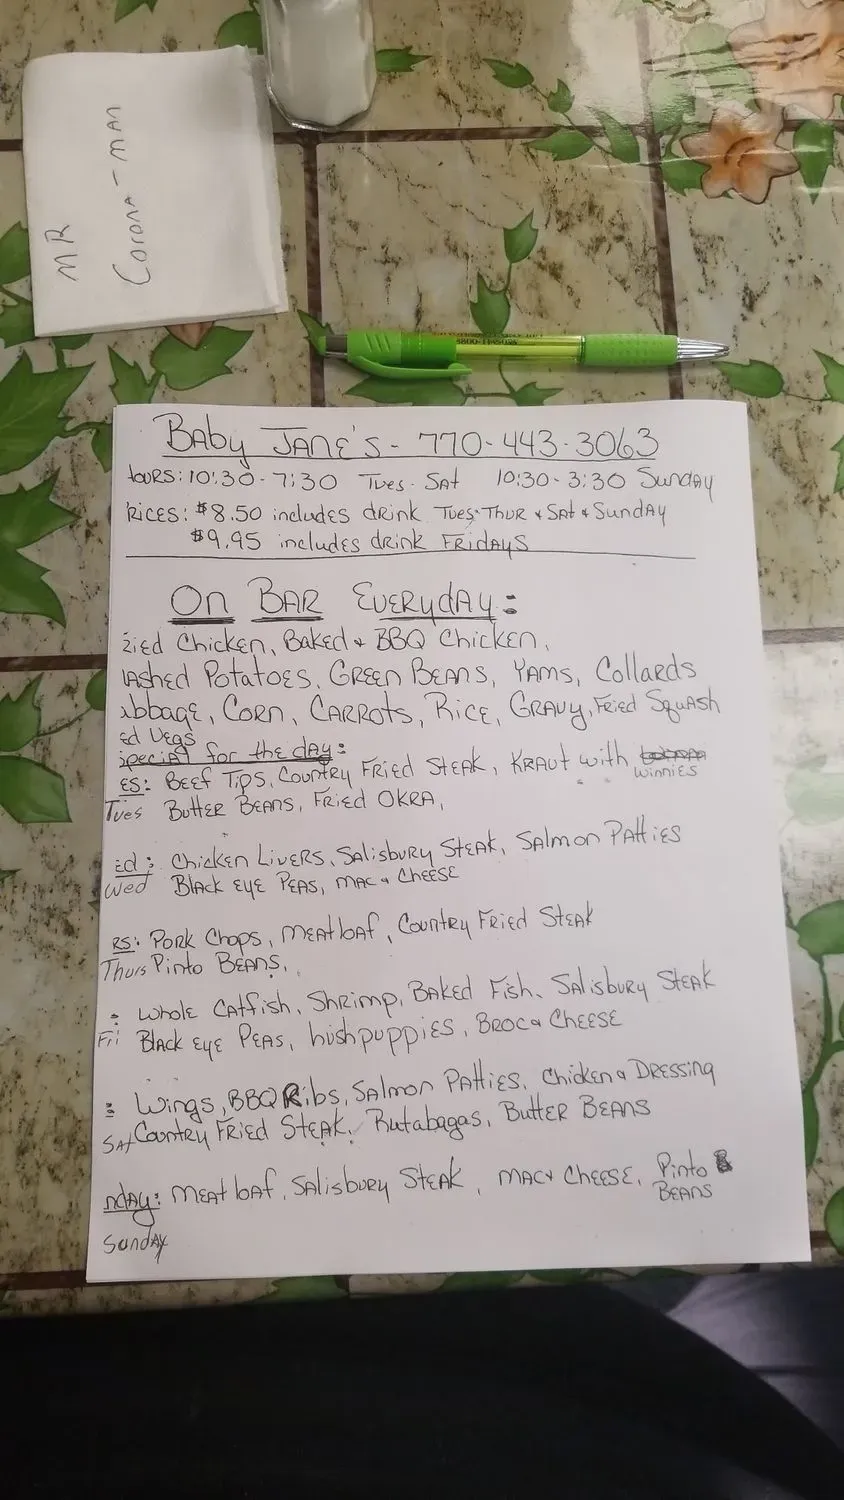 MR
Corona-man
Baby Jane's - 770-443-3063
HOURS: 10:30-7:30 Tues-Sat 10:30-3:30 Sunday
RICES: $8.50 includes drink Tues-Thur & Sat & Sunday
$9.95 includes drink Fridays
On Bar Everyday:
ried Chicken, Baked & BBQ Chicken,
ashed Potatoes, Green Beans, Yams, Collards
abbage, Corn, Carrots, Rice, Gravy, Fried Squash
ed Vegs
Special for the day:
ES: Beef Tips, Country Fried Steak, Kraut with winnies
Tues Butter Beans, Fried Okra,
ed: Chicken Livers, Salisbury Steak, Salmon Patties
Wed Black Eye Peas, Mac & Cheese
RS: Pork Chops, Meatloaf, Country Fried Steak
Thurs Pinto Beans,
: Whole Catfish, Shrimp, Baked Fish, Salisbury Steak
Fri Black Eye Peas, hushpuppies, Broc & Cheese
: Wings, BBQ Ribs, Salmon Patties, Chicken & Dressing
Sat Country Fried Steak, Rutabagas, Butter Beans
nday: Meatloaf, Salisbury Steak, Mac & Cheese, Pinto Beans
Sunday